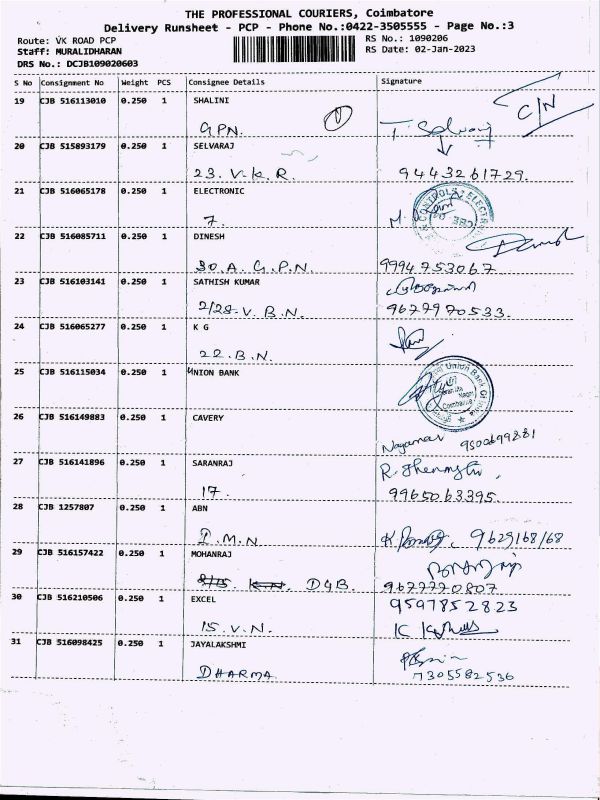 THE PROFESSIONAL COURIERS, Coimbatore
Delivery Runsheet - PCP - Phone No.:0422-3505555 - Page No.:3
Route: VK ROAD PCP RS No.: 1090206
Staff: MURALIDHARAN RS Date: 02-Jan-2023
DRS No.: DCJB109020603
S No Consignment No Weight PCS Consignee Details Signature
19 CJB 516113010 0.250 1 SHALINI C/N
G.P.N. T. Selvaraj
20 CJB 515893179 0.250 1 SELVARAJ
23. V.K.R. 9443261729.
21 CJB 516065178 0.250 1 ELECTRONIC
7.
22 CJB 516085711 0.250 1 DINESH
30.A.G.P.N. 9994753067
23 CJB 516103141 0.250 1 SATHISH KUMAR
2/28.V.B.N. 9677970533.
24 CJB 516065277 0.250 1 K G
22.B.N.
25 CJB 516115034 0.250 1 UNION BANK
Union Bank Of
26 CJB 516149883 0.250 1 CAVERY
27 CJB 516141896 0.250 1 SARANRAJ
17. 9965063395.
28 CJB 1257807 0.250 1 ABN
D.M.N 9629168168
29 CJB 516157422 0.250 1 MOHANRAJ
D4B. 9677770807
30 CJB 516210506 0.250 1 EXCEL 9597852823
15.V.N.
31 CJB 516098425 1 0.250 JAYALAKSHMI
DHARMA 7305582536